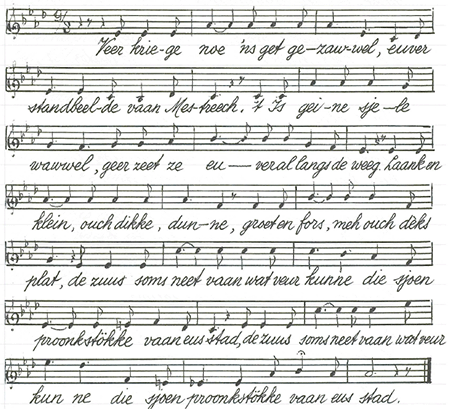 Veer krie-ge noe 'ns get ge-zaw-wel, euver
standbeel-de vaan Mes-treech. 't Is gei-ne sje-le
wawwel, geer zeet ze eu—veral langs de weeg. Laank en
klein, ouch dikke, dun-ne, groet en fors, meh ouch deks
plat, de zuus soms neet vaan wat veur kunne die sjoen
proonkstökke vaan eus stad, de zuus soms neet vaan wat veur
kun ne die sjoen proonkstökke vaan eus stad.